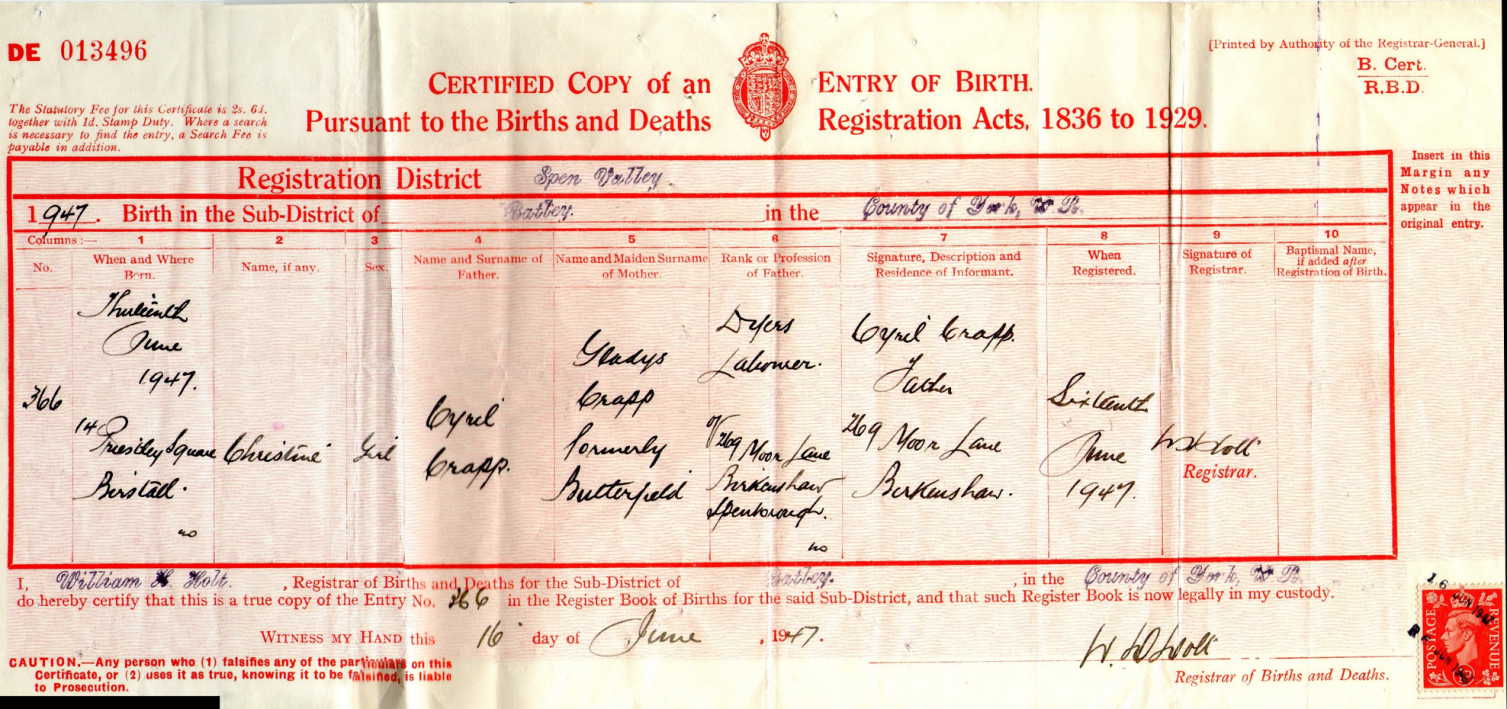 DE 013496
[Printed by Authority of the Registrar-General.]
B. Cert.
R.B.D.
CERTIFIED COPY of an ENTRY OF BIRTH.
Pursuant to the Births and Deaths Registration Acts, 1836 to 1929.
The Statutory Fee for this Certificate is 2s. 6d.
together with 1d. Stamp Duty. Where a search
is necessary to find the entry, a Search Fee is
payable in addition.
Registration District Spen Valley
1947. Birth in the Sub-District of Batley. in the County of York, W.R.
Insert in this
Margin any
Notes which
appear in the
original entry.
Columns:— 1 2 3 4 5 6 7 8 9 10
No.
When and Where
Born.
Name, if any.
Sex.
Name and Surname of
Father.
Name and Maiden Surname
of Mother.
Rank or Profession
of Father.
Signature, Description and
Residence of Informant.
When
Registered.
Signature of
Registrar.
Baptismal Name,
if added after
Registration of Birth.
366
Thirteenth
June
1947.
14
Priestley Square
Birstall.
no
Christine
Girl
Cyril
Crapp.
Gladys
Crapp
formerly
Butterfield
Dyers
Labourer.
of 269 Moor Lane
Birkenshaw
Spenborough.
no
Cyril Crapp.
Father
269 Moor Lane
Birkenshaw.
Sixteenth
June
1947.
W H Holt
Registrar.
I, William H. Holt. , Registrar of Births and Deaths for the Sub-District of Batley. , in the County of York, W.R.
do hereby certify that this is a true copy of the Entry No. 366 in the Register Book of Births for the said Sub-District, and that such Register Book is now legally in my custody.
WITNESS MY HAND this 16 day of June , 1947.
W. H. Holt
Registrar of Births and Deaths.
CAUTION.—Any person who (1) falsifies any of the particulars on this
Certificate, or (2) uses it as true, knowing it to be falsified, is liable
to Prosecution.
16
JUN 1947
POSTAGE
REVENUE